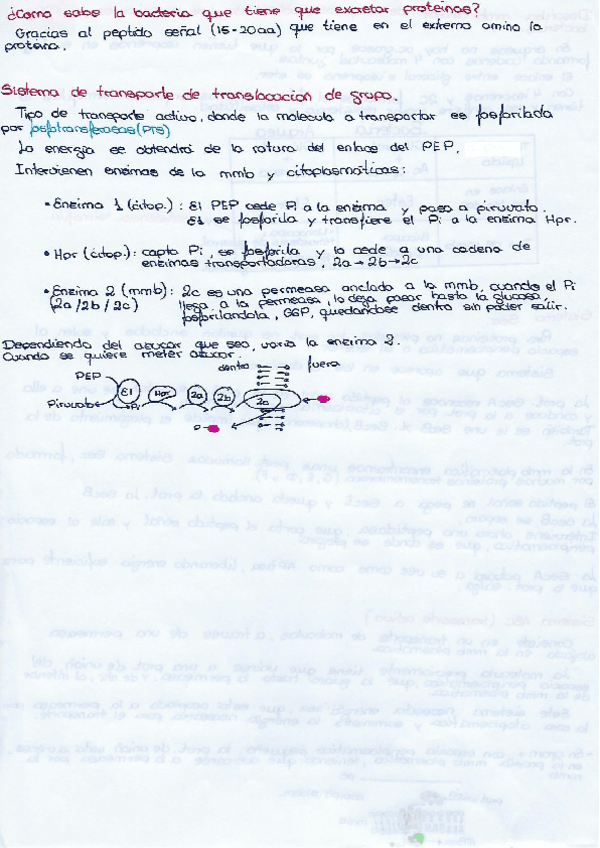 ¿Como sabe la bacteria que tiene que excretar proteinas?
Gracias al peptido señal (15-20aa) que tiene en el extremo amino la
proteina.
Sistema de transporte de translocacion de grupo.
Tipo de transporte activo, donde la molecula a transportar es fosforilada
por fosfotransferasas (PTS)
La energia se obtendrá de la rotura del enlace del PEP.
Intervienen enzimas de la mmb y citoplasmáticas:
• Enzima 1 (citop.): El PEP cede Pi a la enzima y pasa a piruvato.
E1 se fosforila y transfiere el Pi a la enzima Hpr.
• Hpr (citop.): capta Pi, se fosforila y lo cede a una cadena de
enzimas transportadoras, 2a→2b→2c
• Enzima 2 (mmb): 2c es una permeasa anclada a la mmb, cuando el Pi
(2a/2b/2c) llega a la permeasa, lo deja pasar hasta la glucosa,
fosforilandola, G6P, quedandose dentro sin poder salir.
Dependiendo del azucar que sea, varia la enzima 2.
Cuando se quiere meter azucar.
dentro fuera
PEP
E1 Hpr 2a 2b 2c
Piruvato Pi
P